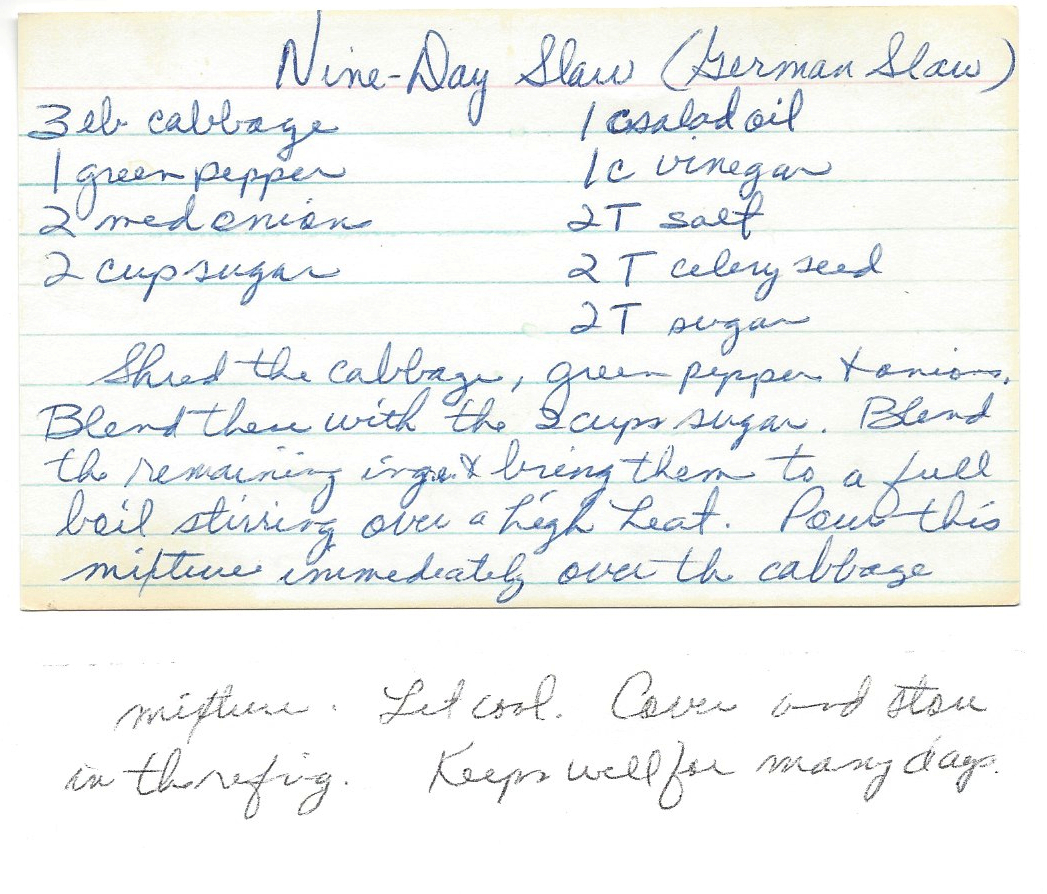 Nine-Day Slaw (German Slaw)
3 lb cabbage
1 green pepper
2 med onion
2 cup sugar
1 c salad oil
1 c vinegar
2 T salt
2 T celery seed
2 T sugar
Shred the cabbage, green pepper & onions.
Blend these with the 2 cups sugar. Blend
the remaining ingre. & bring them to a full
boil stirring over a high heat. Pour this
mixture immediately over th cabbage
mixture. Let cool. Cover and store
in the refrig. Keeps well for many days.